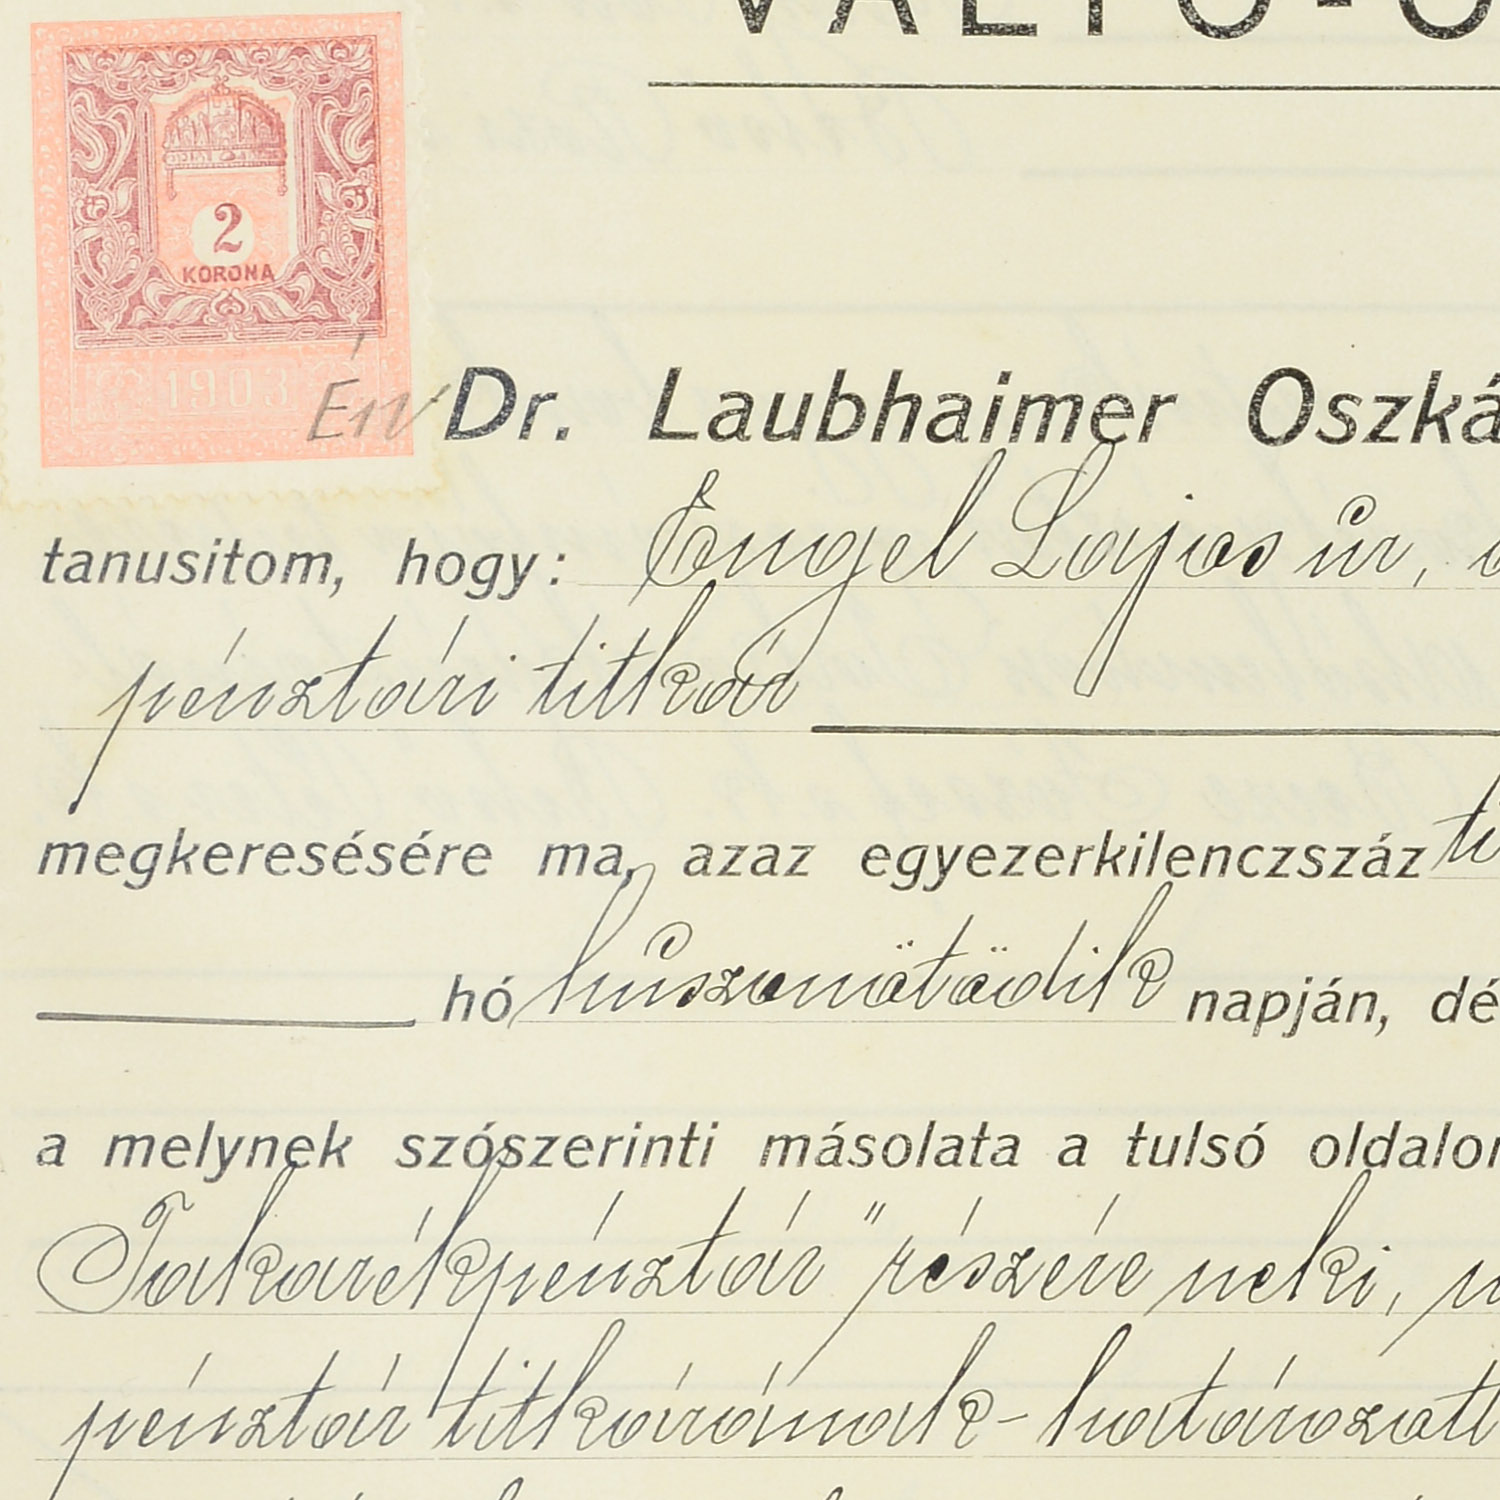 VÁLTÓ-Ó
2
KORONA
1903
Én Dr. Laubhaimer Oszká
tanusitom, hogy: Engel Lajos úr, a
pénztári titkár
megkeresésére ma, azaz egyezerkilenczszáz ti
hó huszonötödik napján, dé
a melynek szószerinti másolata a tulsó oldalon
Takarékpénztár" részére neki, m
pénztár titkárának - határozatt